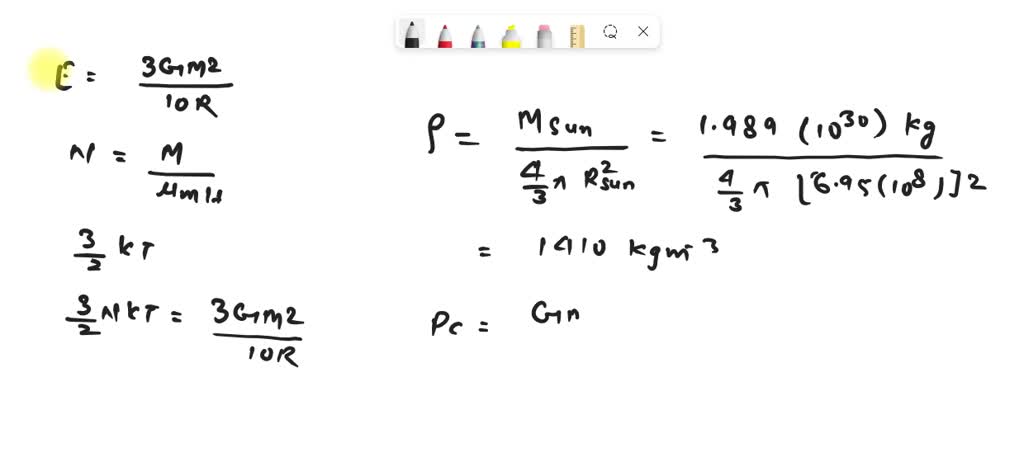 E = 3GM2 / 10R
N = M / μmH
3/2 kT
3/2 NkT = 3GM2 / 10R
ρ = Msun / 4/3 π R²sun = 1.989 (10³⁰) kg / 4/3 π [6.95(10⁸)]2
= 1410 kgm-3
Pc = Gm